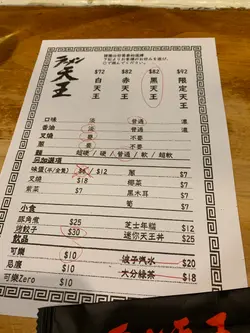 ラーメン 天王
$72 $82 $82 $92
白天王 赤天王 黑天王 限定天王
口味 淡 普通 濃
香油 淡 普通 濃
叉燒 要 不要
蔥 要 不要
麵 超硬 / 硬 / 普通 / 軟 / 超軟
另加選項
味蛋(半/全賣) $6 / $12 蔥 $7
叉燒 $18 粟米 $7
紫菜 $7 黑木耳 $7
筍 $7
小食
豚角煮 $25 芝士年糕 $12
煎餃子 $30 迷你天王丼 $25
飲品
可樂 $10 波子汽水 $20
忌廉 $10 大分綠茶 $18
可樂Zero $10